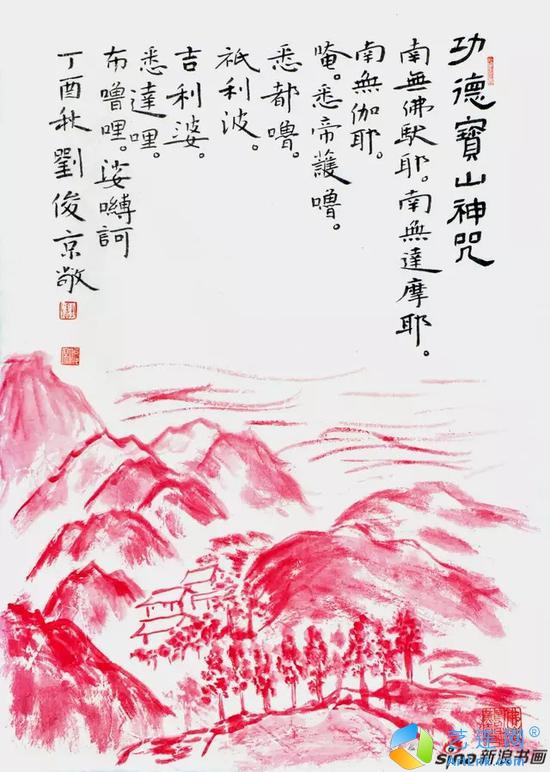 功德寶山神咒
南無佛馱耶。南無達摩耶。
南無伽耶。
唵。悉帝護嚕。
悉都嚕。
祇利波。
吉利婆。
悉達哩。
布嚕哩。娑嚩訶
丁酉秋 劉俊京敬
sina新浪书画